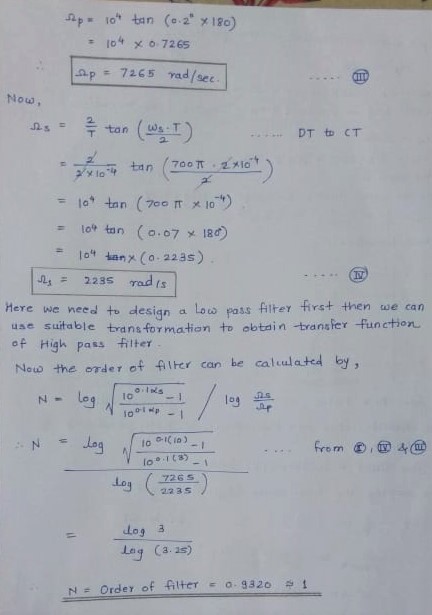 Ωp = 10⁴ tan (0.2° × 180)
= 10⁴ × 0.7265
∴ Ωp = 7265 rad/sec. ..... III
Now,
Ωs = 2/T tan (ωs·T/2) ...... DT to CT
= 2/(2×10⁻⁴) tan (700π · 2×10⁻⁴/2)
= 10⁴ tan (700 π × 10⁻⁴)
= 10⁴ tan (0.07 × 180)
= 10⁴ tan × (0.2235).
Ωs = 2235 rad/s ..... IV
Here we need to design a Low pass filter first then we can
use suitable transformation to obtain transfer function
of High pass filter.
Now the order of filter can be calculated by,
N = log √((10^0.1αs − 1)/(10^0.1αp − 1)) / log Ωs/Ωp
∴ N = log √((10^0.1(10) − 1)/(10^0.1(3) − 1)) / log (7265/2235) .... from I, IV & III
= log 3 / log (3.25)
N = Order of filter = 0.9320 ≈ 1